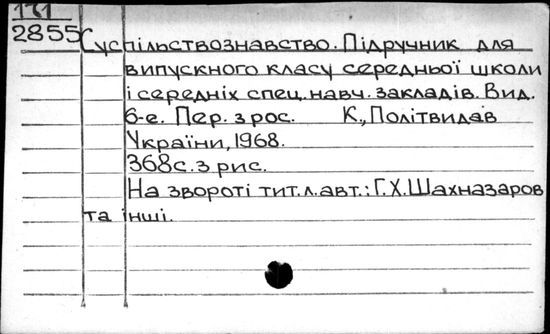 171
2855
Суспільствознавство. Підручник для
випускного класу середньої школи
і середніх спец. навч. закладів. Вид.
6-е. Пер. з рос. К., Політвидав
України, 1968.
368с. з рис.
На звороті тит. л. авт.: Г.Х. Шахназаров
та інші.